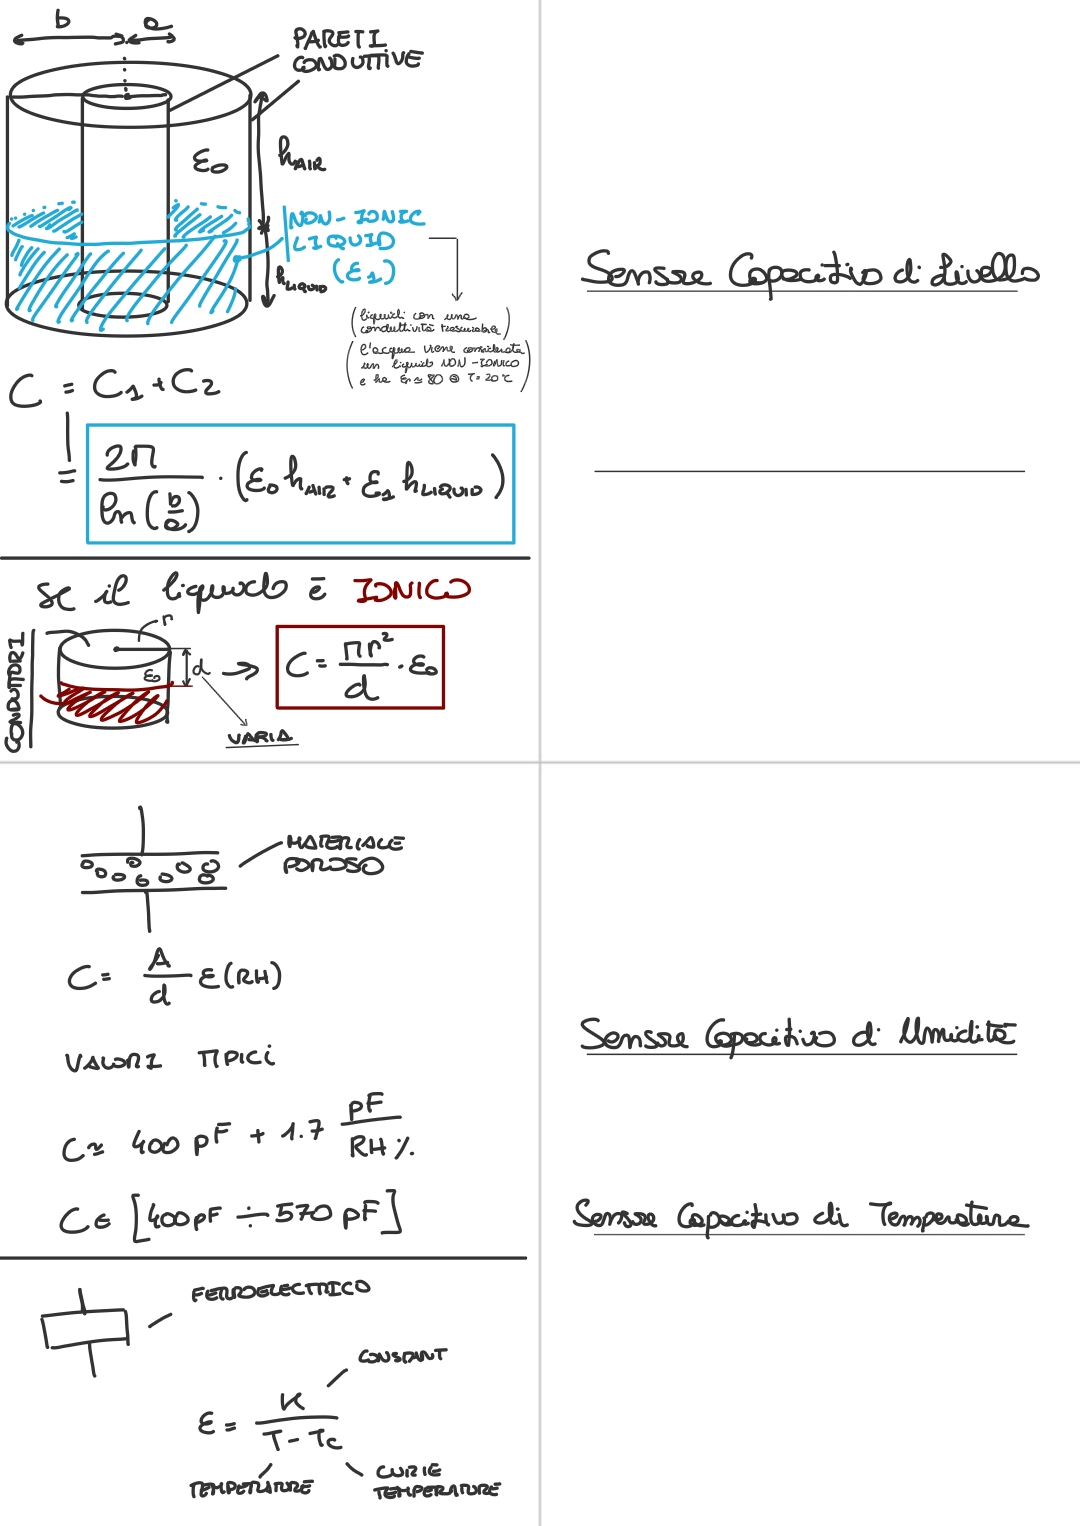 b a
PARETI
CONDUTTIVE
ε₀
h_AIR
NON-IONIC
LIQUID
(ε₁)
h_LIQUID
(liquidi con una
conduttività trascurabile)
(l'acqua viene considerata
un liquido NON-IONICO
e ha εr ≃ 80 @ T = 20°C)
C = C₁ + C₂
= 2π / ln(b/a) · (ε₀ h_AIR + ε₁ h_LIQUID)
Sensore Capacitivo di Livello
se il liquido è IONICO
CONDUTTORI
r
ε₀
d
VARIA
C = πr²/d · ε₀
MATERIALE
POROSO
C = A/d ε(RH)
VALORI TIPICI
C ≃ 400 pF + 1.7 pF/RH%
C ∈ [400 pF ÷ 570 pF]
Sensore Capacitivo di Umidità
Sensore Capacitivo di Temperatura
FERROELECTTRICO
CONSTANT
ε = K / (T - Tc)
TEMPERATURE
CURIE
TEMPERATURE